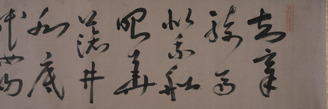 知章
騎馬
似乘船
眼花
落井
水底